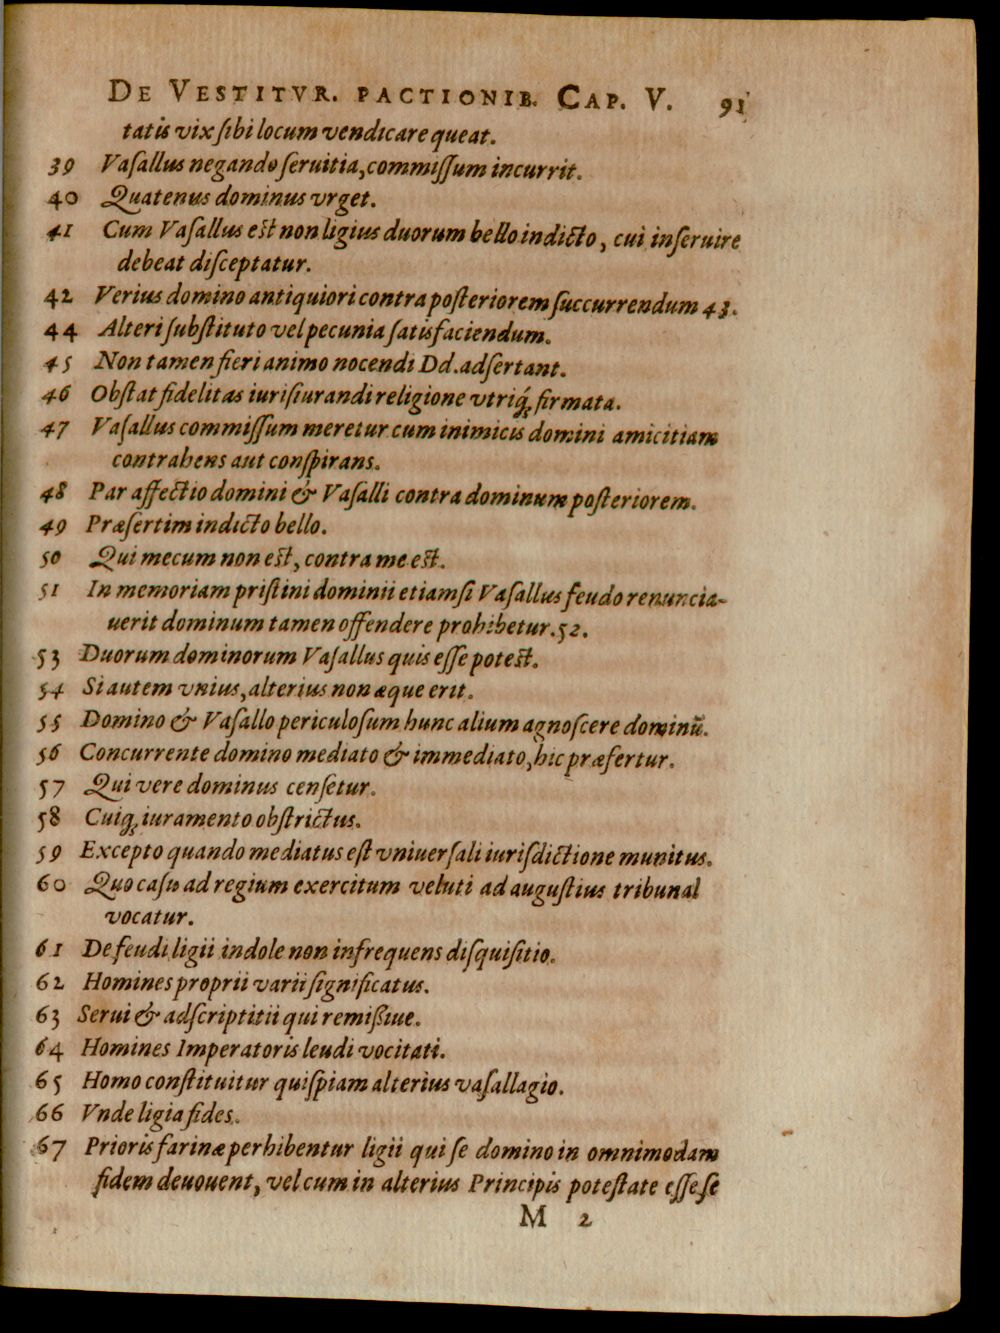 DE VESTITVR. PACTIONIB. CAP. V. 91
tatis vix ſibi locum vendicare queat.
39 Vaſallus negando ſeruitia, commiſſum incurrit.
40 Quatenus dominus vrget.
41 Cum Vaſallus est non ligius duorum bello indicto, cui inſeruire
debeat diſceptatur.
42 Verius domino antiquiori contra poſteriorem ſuccurrendum 43.
44 Alteri ſubſtituto vel pecunia ſatisfaciendum.
45 Non tamen fieri animo nocendi Dd. adſertant.
46 Obſtat fidelitas iurisiurandi religione vtriq́; firmata.
47 Vaſallus commiſſum meretur cum inimicis domini amicitiam
contrahens aut conſpirans.
48 Par affectio domini & Vaſalli contra dominum poſteriorem.
49 Præſertim indicto bello.
50 Qui mecum non est, contra me est.
51 In memoriam priſtini dominii etiamſi Vaſallus feudo renuncia-
uerit dominum tamen offendere prohibetur. 52.
53 Duorum dominorum Vaſallus quis eſſe potest.
54 Si autem vnius, alterius non æque erit.
55 Domino & Vaſallo periculoſum hunc alium agnoſcere dominū.
56 Concurrente domino mediato & immediato, hic præfertur.
57 Qui vere dominus cenſetur.
58 Cuiq; iuramento obſtrictus.
59 Excepto quando mediatus eſt vniuerſali iuriſdictione munitus.
60 Quo caſu ad regium exercitum veluti ad auguſtius tribunal
vocatur.
61 De feudi ligii indole non infrequens diſquiſitio.
62 Homines proprii varii ſignificatus.
63 Serui & adſcriptitii qui remißiue.
64 Homines Imperatoris leudi vocitati.
65 Homo conſtituitur quiſpiam alterius vaſallagio.
66 Vnde ligia fides.
67 Prioris farinæ perhibentur ligii qui ſe domino in omnimodam
fidem deuouent, vel cum in alterius Principis poteſtate eſſe ſe
M 2